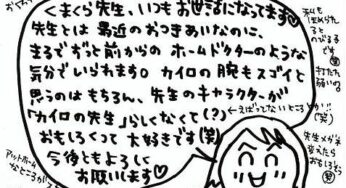 くまくら先生、いつもお世話になってます♡
先生とは最近のおつきあいなのに、
まるでずっと前からのホームドクターのような
気分でいられます。カイロの腕もスゴイと
思うのはもちろん、先生のキャラクターが
「カイロの先生」らしくなくて(?)
おもしろくって大好きです(笑)
今後ともよろしく
お願いします
←えばってないところとか!!
(笑)
アットホーム
なところが
先生メガネ
変えたら
おもしろそう